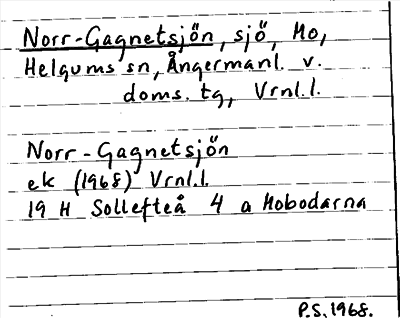 Norr-Gagnetsjön, sjö, Mo,
Helgums sn, Ångermanl. v.
doms. tg, Vrnl.l.
Norr-Gagnetsjön
ek (1968) Vrnl.l.
19 H Sollefteå 4 a Mobodarna
P.S. 1968.